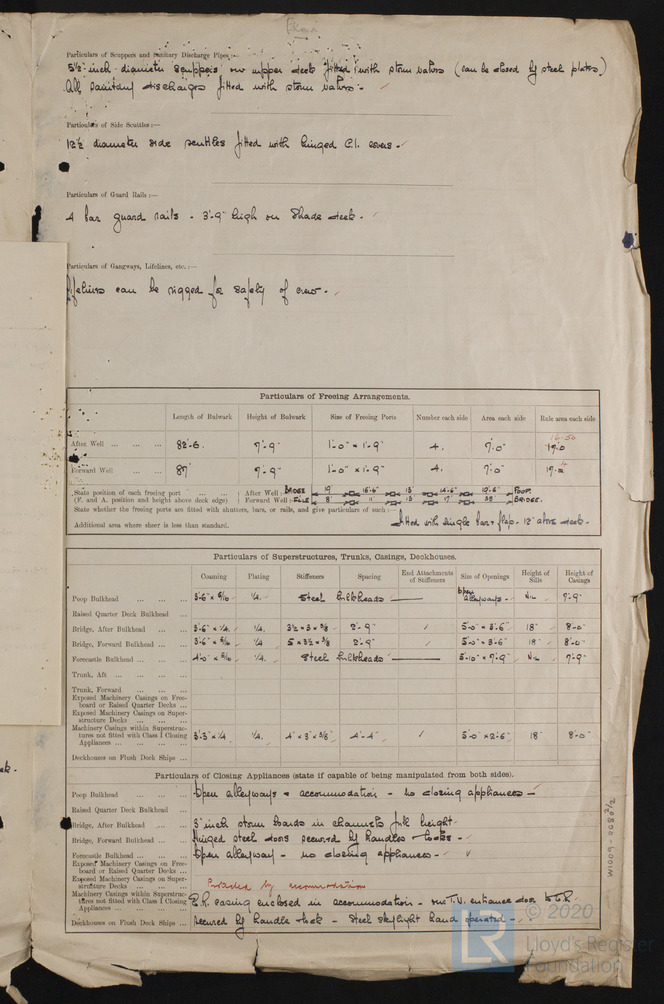 Particulars of Scuppers and Sanitary Discharge Pipes:—
5½ inch diameter scuppers on upper deck fitted with storm valves (can be closed by steel plates.)
All sanitary discharges fitted with storm valves -
Particulars of Side Scuttles:—
12½ diameter side scuttles fitted with hinged C.I. covers -
Particulars of Guard Rails:—
4 bar guard rails - 3'-9" high on Shade deck -
Particulars of Gangways, Lifelines, etc.:—
Lifelines can be rigged for safety of crew -
Particulars of Freeing Arrangements.
Length of Bulwark Height of Bulwark Size of Freeing Ports Number each side Area each side Rule area each side
After Well ... ... ... 82'-6. 7'-9" 1'-0" × 1'-9" 4. 7'.0"
Forward Well ... ... 87' 7'-9" 1'-0" × 1'-9" 4. 7'.0"
State position of each freeing port ... ... ... After Well:— BRIDGE POOP.
(F. and A. position and height above deck edge) Forward Well:— BRIDGE.
State whether the freeing ports are fitted with shutters, bars, or rails, and give particulars of such:—
fitted with single bar + flap - 12" above deck -
Additional area where sheer is less than standard.
Particulars of Superstructures, Trunks, Casings, Deckhouses.
Coaming Plating Stiffeners Spacing End Attachments of Stiffeners Size of Openings Height of Sills Height of Casings
Poop Bulkhead ... ... ... 3'-6" × 5/16 ¼. Steel bulkheads open alleyways - Nil 7'-9"
Raised Quarter Deck Bulkhead ...
Bridge, After Bulkhead ... ... 3'-6" × ¼. ¼ 3½ × 3 × 3/8 2'-9" 5'-0" × 3'-6" 18" 8'-0"
Bridge, Forward Bulkhead ... ... 3'-6" × 5/16 ¼ 5 × 3½ × 3/8 2'-9" 5'-0" × 3'-6" 18" 8'-0"
Forecastle Bulkhead ... ... ... 4'-0" × 5/16 ¼. Steel bulkheads 5'-10" × 7'-9" Nil 7'-9"
Trunk, Aft ... ... ... ...
Trunk, Forward ... ... ...
Exposed Machinery Casings on Freeboard or Raised Quarter Decks ...
Exposed Machinery Casings on Superstructure Decks ... ... ...
Machinery Casings within Superstructures not fitted with Class I Closing Appliances ... ... ... ... 3'-3" × ¼ ¼. 4" × 3" × 3/8" 4'-4" 5'-0" × 2'-6" 18" 8'-0"
Deckhouses on Flush Deck Ships ...
Particulars of Closing Appliances (state if capable of being manipulated from both sides).
Poop Bulkhead ... ... ... Open alleyways & accommodation - no closing appliances -
Raised Quarter Deck Bulkhead ...
Bridge, After Bulkhead ... ... 3" inch storm boards in channels full height
Bridge, Forward Bulkhead ... ... Hinged steel doors secured by handles
Forecastle Bulkhead ... ... ... Open alleyway - no closing appliances -
Exposed Machinery Casings on Freeboard or Raised Quarter Decks ...
Exposed Machinery Casings on Superstructure Decks ... ... ... Protected by accommodation
Machinery Casings within Superstructures not fitted with Class I Closing Appliances ... ... ... ... E.R. casing enclosed in accommodation - entrance door to E.R.
Deckhouses on Flush Deck Ships ... secured by handle - Steel skylight hand operated -
W1009-0689 2/2
© 2020
LR
Lloyd's Register
Foundation